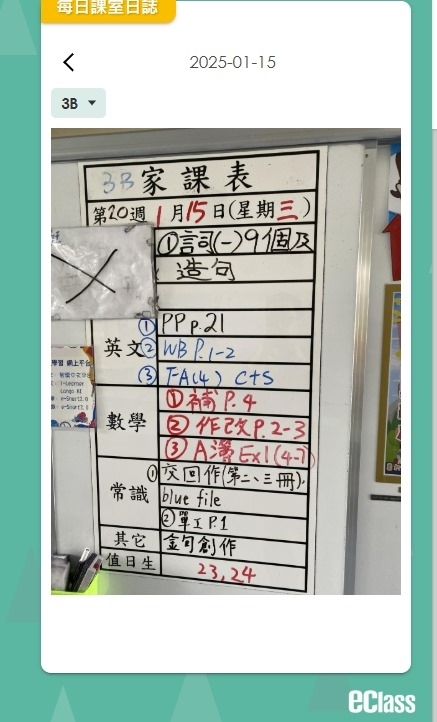 每日課室日誌
2025-01-15
3B
3B 家課表
第20週 1月15日(星期三)
①詞(一)9個及
造句
英文
① PP p.21
② WB P.1-2
③ FA(4) C+S
數學
① 補 P.4
② 作改 P.2-3
③ A簿 Ex1(4-7)
常識
① 交回作(第二、三冊),
blue file
② 單工 P.1
其它
金句創作
值日生
23,24
eClass